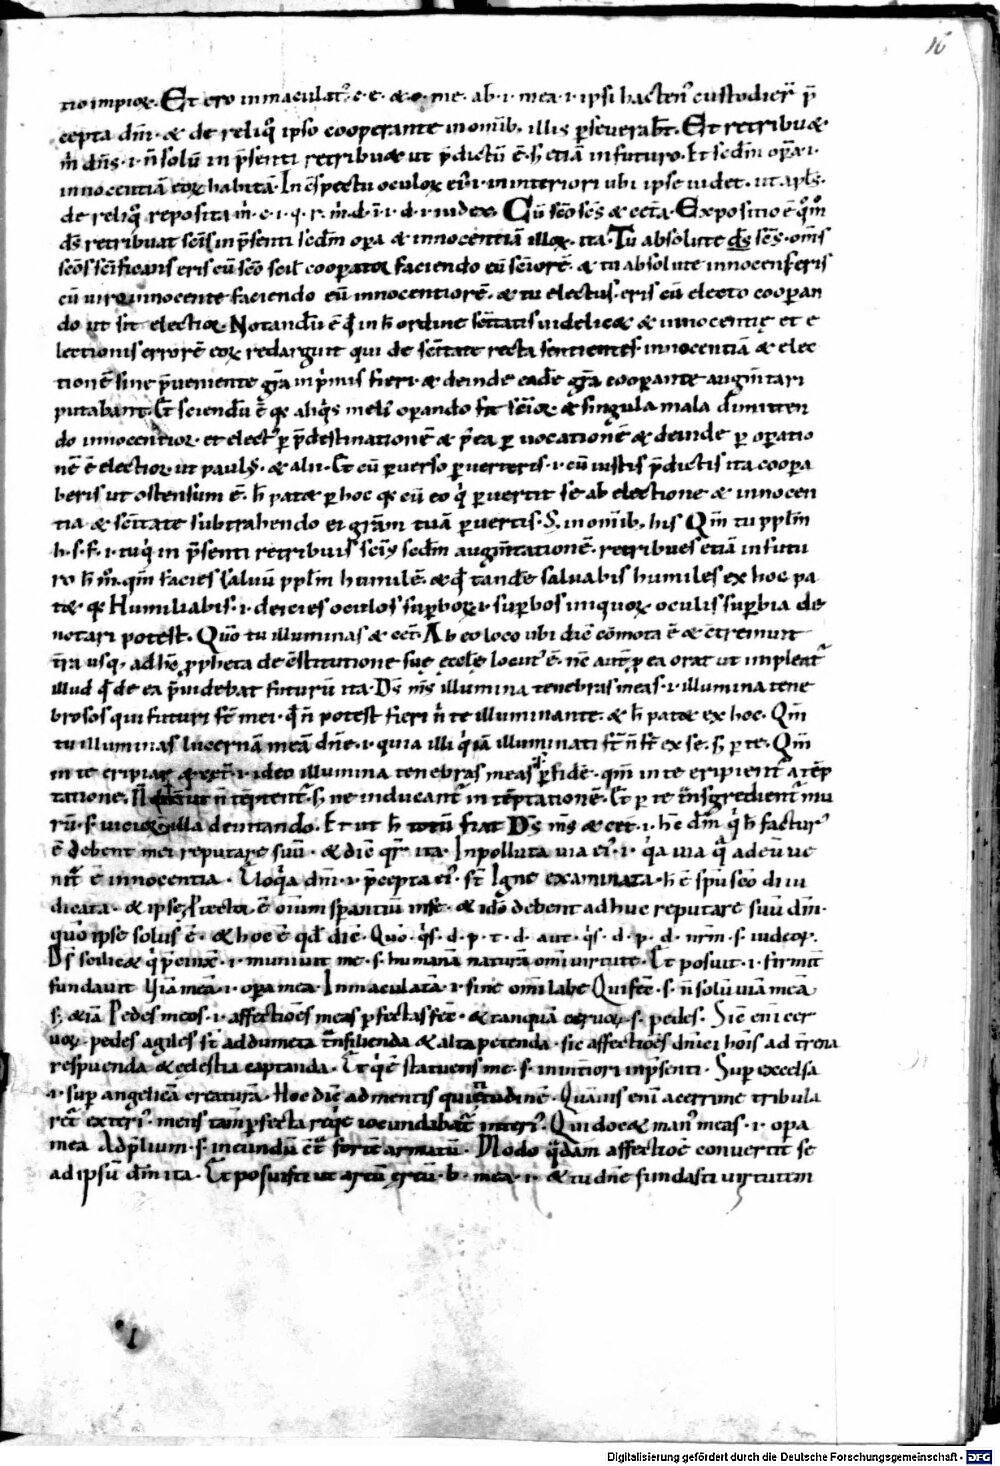 16
tio impioꝝ. Et ero inmaculat᷒. c. e. & o. me. ab. i. mea. i. ipsi hacten᷒ custodier̄ p̄
cepta dn̄i. & de reliq᷒ ipso cooperante in omīb, illis ꝑseverab̄t. Et retribu&
m̄ dn̄s. i. n̄ solū in p̄senti retribu& ut p̄dictū ē. s; etiā in futuro. Et sedm̄ oꝑa. i.
innocentiā eoꝝ habitā. In ꝯspectu oculoꝝ ei᷒. i. in interiori ubi ipse videt. ut apl̄s.
de reliq᷒ reposita m̄. e. i. q. r. m̄. d. ī. i. d. i. iudex. Cū sc̄o sc̄s & cet̄a. Expositio ē qm̄
ds̄ retribuat sc̄is in p̄senti sedm̄ oꝑa & innocentiā illoꝝ. ita. Tu absolute ds̄ sc̄s. om̄s
sc̄os sc̄ificans eris cū sc̄o scil cooꝑator faciendo eū sc̄iorē. & tu absolute innocens eris
cū viro innocente faciendo eū innocentiorē. & tu electus eris cū electo cooꝑan
do ut sit electior. Notandū ē qđ in h̄ ordine sc̄itatis videlic& & innocentię et e
lectionis errorē eoꝝ redarguit qui de sc̄itate recta sentientes. innocentiā & elec
tionē sine p̄veniente gr̄a in p̄mis fieri. & deinde eadē gr̄a cooꝑante augm̄tari
putabant. Et sciendū ē qđ aliq̄s meli᷒ oꝑando fit sc̄ior. & singula mala dimitten
do innocentior. et elect᷒ ꝑ p̄destinationē & p̄ea ꝑ vocationē & deinde ꝑ oꝑatio
nē ē electior. ut paul᷒. & alii. Et cū ꝑverso ꝑverteris. i. cū iustis p̄dictis ita cooꝑa
beris ut ostensum ē. h̄ pat& ꝑ hoc qđ cū eo q̇ ꝑvertit se ab electione & innocen
tia & sc̄itate subtrahendo ei gr̄am tuā ꝑvertis. S. in omīb, his Qm̄ tu ppl̄m
h. s. f. i. tu q̇ in p̄senti retribuis sc̄is sedm̄ augm̄tationē. retribues etiā in futu
ro h̄ m̄. qm̄ facies salvū ppl̄m humilē. & qđ tandē salvabis humiles ex hoc pa
t& qđ Humiliabis. i. deicies oculos suꝑboꝝ. i. suꝑbos in quoꝝ oculis suꝑbia de
notari potest. Qm̄ tu illuminas & cet̄. Ab eo loco ubi diē cōmota ē & ꝯtremuit
t̄ra usq, ad hc̄ ꝓpheta de ꝯstitutione suę eccłę locut᷒ ē. nc̄ autē ꝑ ea orat ut impleat᷒
illud qđ de ea p̄videbat futurū ita. Ds̄ m̄s illumina tenebras meas. i. illumina tene
brosos qui futuri st̄ mei. qđ n̄ potest fieri n̄ te illuminante. & h̄ pat& ex hoc. Qm̄
tu illuminas lucernā meā dn̄e. i. quia illi q̇ iā illuminati st̄ n̄ st̄ ex se. s; ꝑ te. Qm̄
in te eripiar & cet̄. i. ideo illumina tenebras meas ꝑ fidē. qm̄ in te eripient᷒ a tēp
tatione. ut n̄ tēptent᷒. s; ne inducant᷒ in tēptationē. Et ꝑ te t̄nsgredient᷒ mu
rū. s. vicioꝝ illa devitando. Et ut h̄ totū fiat Ds̄ m̄s & cet̄. i. hc̄ dn̄m q̇ h̄ factur᷒
ē debent mei reputare suū. & diē qr̄ ita. Inpolluta via ei᷒. i. q̇a via q̄ ad eū ve
nit̄ ē innocentia. Eloq̇a dn̄i. i. p̄cepta ei᷒. st̄ Igne examinata. h̄ ē spū sc̄o diiu
dicata. & ipse ꝓtector ē om̄ium sꝑantiū in se. & idō debent adhuc reputare suū dn̄m.
quō ipse solus ē. & hoc ē qd̄ diē. Quō. q̇s. d. p. t. d. aut. q̇s. d. p. d. nr̄m. s. iudeoꝝ.
Ds̄ scilic& q̇ p̄cinx̄. i. munivit me. s. humanā naturā omi virtute. Et posuit. i. firmit̄
fundavit Viā meā. i. oꝑa mea. Inmaculatā. i. sine omi labe Qui fecit. s. n̄ solū viā meā
s; & iā Pedes meos. i. affectiōes meas ꝑfectas fec̄. & tanquā cervoꝝ. s. pedes. Sic eni cer
voꝝ pedes agiles st̄ ad dumeta t̄nsilienda & alta petenda. sic affectiōes dn̄ici hoīs ad t̄rena
respuenda & cęlestia captanda. Et q̇ ē statuens me. s. in intiori in p̄senti. Suꝑ excelsa
.i. suꝑ angelicā creaturā. Hoc diē ad mentis quietudinē. Quāvis eni acerrime tribula
ret̄ exteri᷒. mens tam̄ ꝑfecta req̇e iocundabat᷒ interi᷒. Qui doc& man᷒ meas. i. oꝑa
mea Ad p̄lium. s. in eundū ē ꝯt̄ fortē armatū. Modo q̄dam affectiōe convertit se
ad ipsū dn̄m ita. Et posuisti ut arcū ereū. b. mea. i. & tu dn̄e fundasti virtutem
I
Digitalisierung gefördert durch die Deutsche Forschungsgemeinschaft - DFG